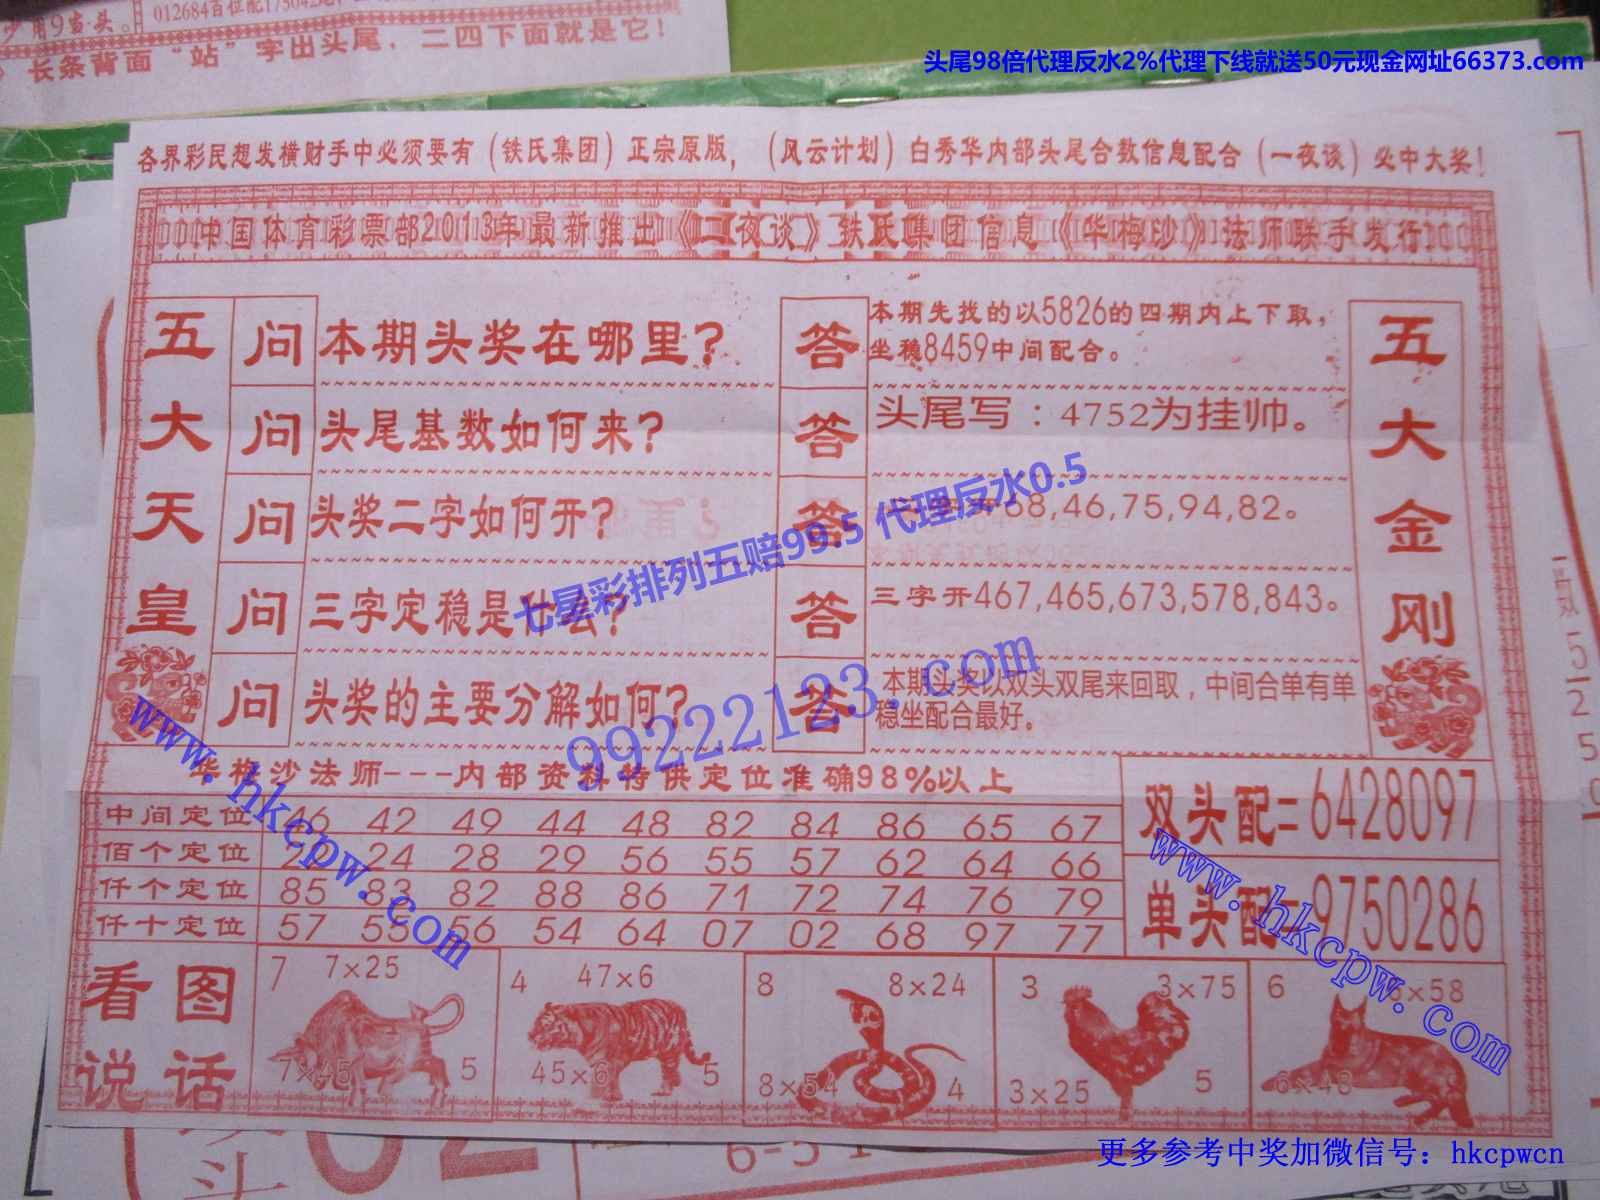 少用9当头。
012684百位配175042尾
长条背面“站”字出头尾，二四下面就是它！
头尾98倍代理反水2%代理下线就送50元现金网址66373.com
各界彩民想发横财手中必须要有（铁氏集团）正宗原版，（风云计划）白秀华内部头尾合数信息配合（一夜谈）必中大奖！
中国体育彩票部2013年最新推出《一夜谈》铁氏集团信息《华梅沙》法师联手发行
五大天皇
问 本期头奖在哪里？
答 本期先找的以5826的四期内上下取，
坐稳8459中间配合。
问 头尾基数如何来？
答 头尾写：4752为挂帅。
问 头奖二字如何开？
答 68,46,75,94,82。
问 三字定稳是什么？
答 三字开467,465,673,578,843。
问 头奖的主要分解如何？
答 本期头奖以双头双尾来回取，中间合单有单
稳坐配合最好。
五大金刚
七星彩排列五赔99.5 代理反水0.5
99222123.com
www.hkcpw.com
www.hkcpw.com
华梅沙法师---内部资料特供定位准确98%以上
中间定位 46 42 49 44 48 82 84 86 65 67
佰个定位 24 28 29 56 55 57 62 64 66
仟个定位 85 83 82 88 86 71 72 74 76 79
仟十定位 57 55 56 54 64 07 02 68 97 77
双头配=6428097
单头配=9750286
看图
说话
7 7×25
7×45 5
4 47×6
45×6 5
8 8×24
8×54 4
3 3×75
3×25 5
6 6×58
6×48
6-51
5
2
5
更多参考中奖加微信号：hkcpwcn